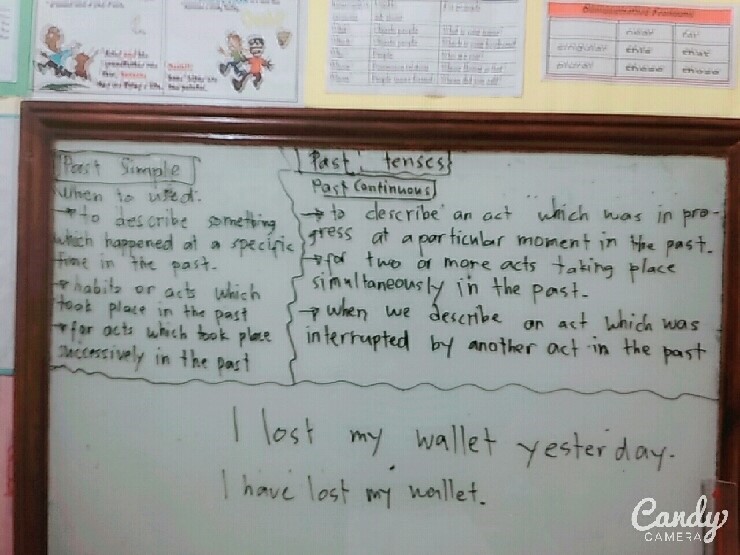 Demonstrative Pronouns
near far
singular this that
plural these those
Past tenses
Past Simple
When to used:
→ to describe something
which happened at a specific
time in the past.
→ habits or acts which
took place in the past
→ for acts which took place
successively in the past
Past Continuous
→ to describe an act which was in pro-
gress at a particular moment in the past.
→ for two or more acts taking place
simultaneously in the past.
→ when we describe an act which was
interrupted by another act in the past
I lost my wallet yesterday.
I have lost my wallet.
Candy
CAMERA